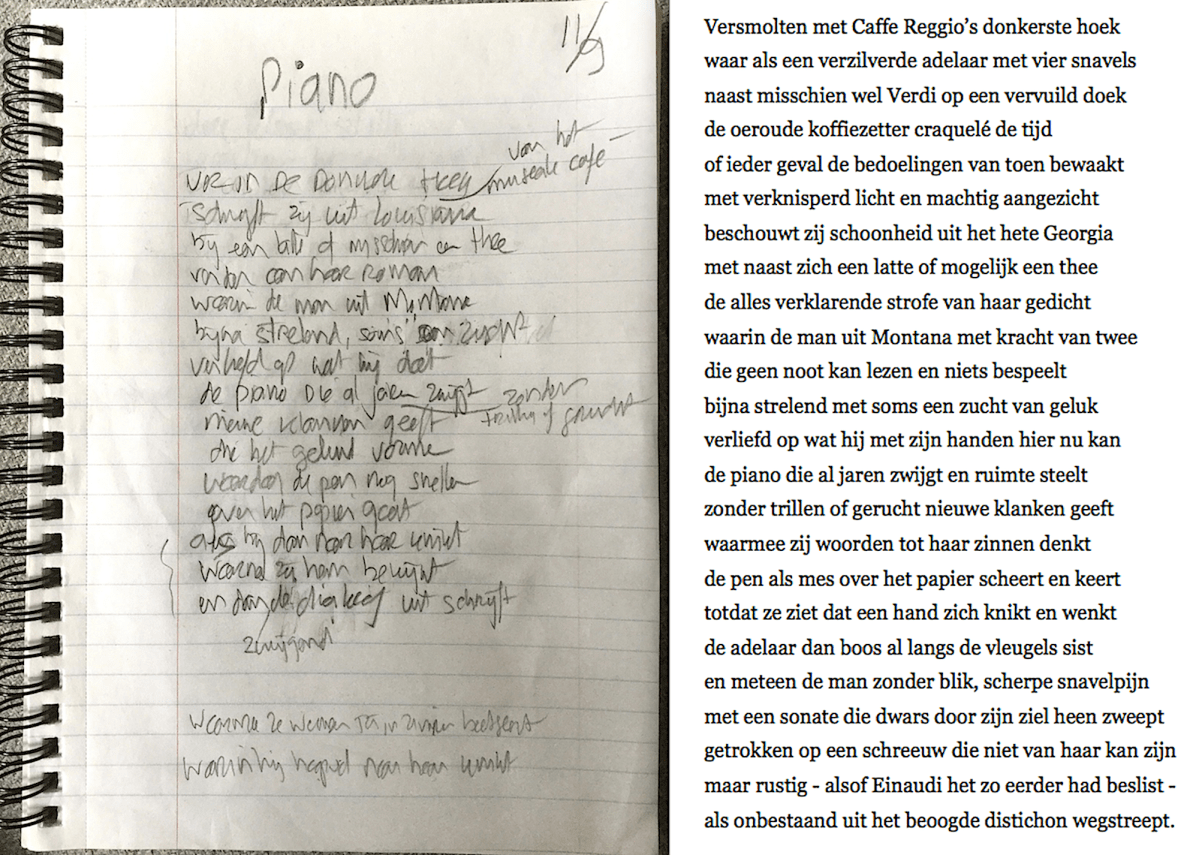 11/9
Piano
van het
museale café
schrijft zij uit Louisiana
bij een latte of misschien een thee
aan haar roman
waarin de man uit Montana
bijna strelend, soms een zucht
verliefd op wat hij doet
de piano die al jaren zwijgt zonder
nieuwe klanken geeft trilling of gerucht
die het geluid vormen
waardoor de pen nog sneller
over het papier gaat
als hij dan naar haar wenkt
waarna zij hem
en dan de dialoog uit schrijft
zwijgend
waarin hij naar haar wenkt
Versmolten met Caffe Reggio’s donkerste hoek
waar als een verzilverde adelaar met vier snavels
naast misschien wel Verdi op een vervuild doek
de oeroude koffiezetter craquelé de tijd
of ieder geval de bedoelingen van toen bewaakt
met verknisperd licht en machtig aangezicht
beschouwt zij schoonheid uit het hete Georgia
met naast zich een latte of mogelijk een thee
de alles verklarende strofe van haar gedicht
waarin de man uit Montana met kracht van twee
die geen noot kan lezen en niets bespeelt
bijna strelend met soms een zucht van geluk
verliefd op wat hij met zijn handen hier nu kan
de piano die al jaren zwijgt en ruimte steelt
zonder trillen of gerucht nieuwe klanken geeft
waarmee zij woorden tot haar zinnen denkt
de pen als mes over het papier scheert en keert
totdat ze ziet dat een hand zich knikt en wenkt
de adelaar dan boos al langs de vleugels sist
en meteen de man zonder blik, scherpe snavelpijn
met een sonate die dwars door zijn ziel heen zweept
getrokken op een schreeuw die niet van haar kan zijn
maar rustig - alsof Einaudi het zo eerder had beslist -
als onbestaand uit het beoogde distichon wegstreept.